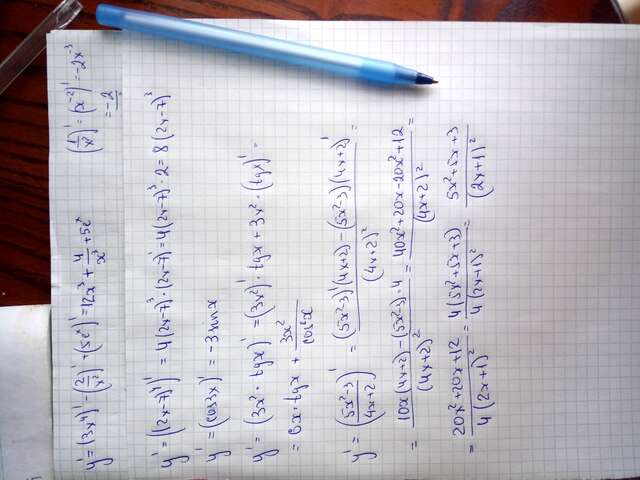 y' = (3x⁴)' - (2/x²)' + (5eˣ)' = 12x³ + 4/x³ + 5eˣ
(1/x²)' = (x⁻²)' = -2x⁻³
= -2
y' = ((2x-7)⁴)' = 4(2x-7)³·(2x-7)' = 4(2x-7)³·2 = 8(2x-7)³
y' = (cos3x)' = -3 sin x
y' = (3x²·tgx)' = (3x²)'·tgx + 3x²·(tgx)' =
= 6x·tgx + 3x²/cos²x
y' = ((5x²-3)/(4x+2))' = ((5x²-3)'(4x+2) - (5x²-3)(4x+2)')/(4x+2)² =
= (10x(4x+2) - (5x²-3)·4)/(4x+2)² = (40x²+20x-20x²+12)/(4x+2)² =
= (20x²+20x+12)/(4(2x+1)²) = 4(5x²+5x+3)/(4(2x+1)²) = (5x²+5x+3)/(2x+1)²